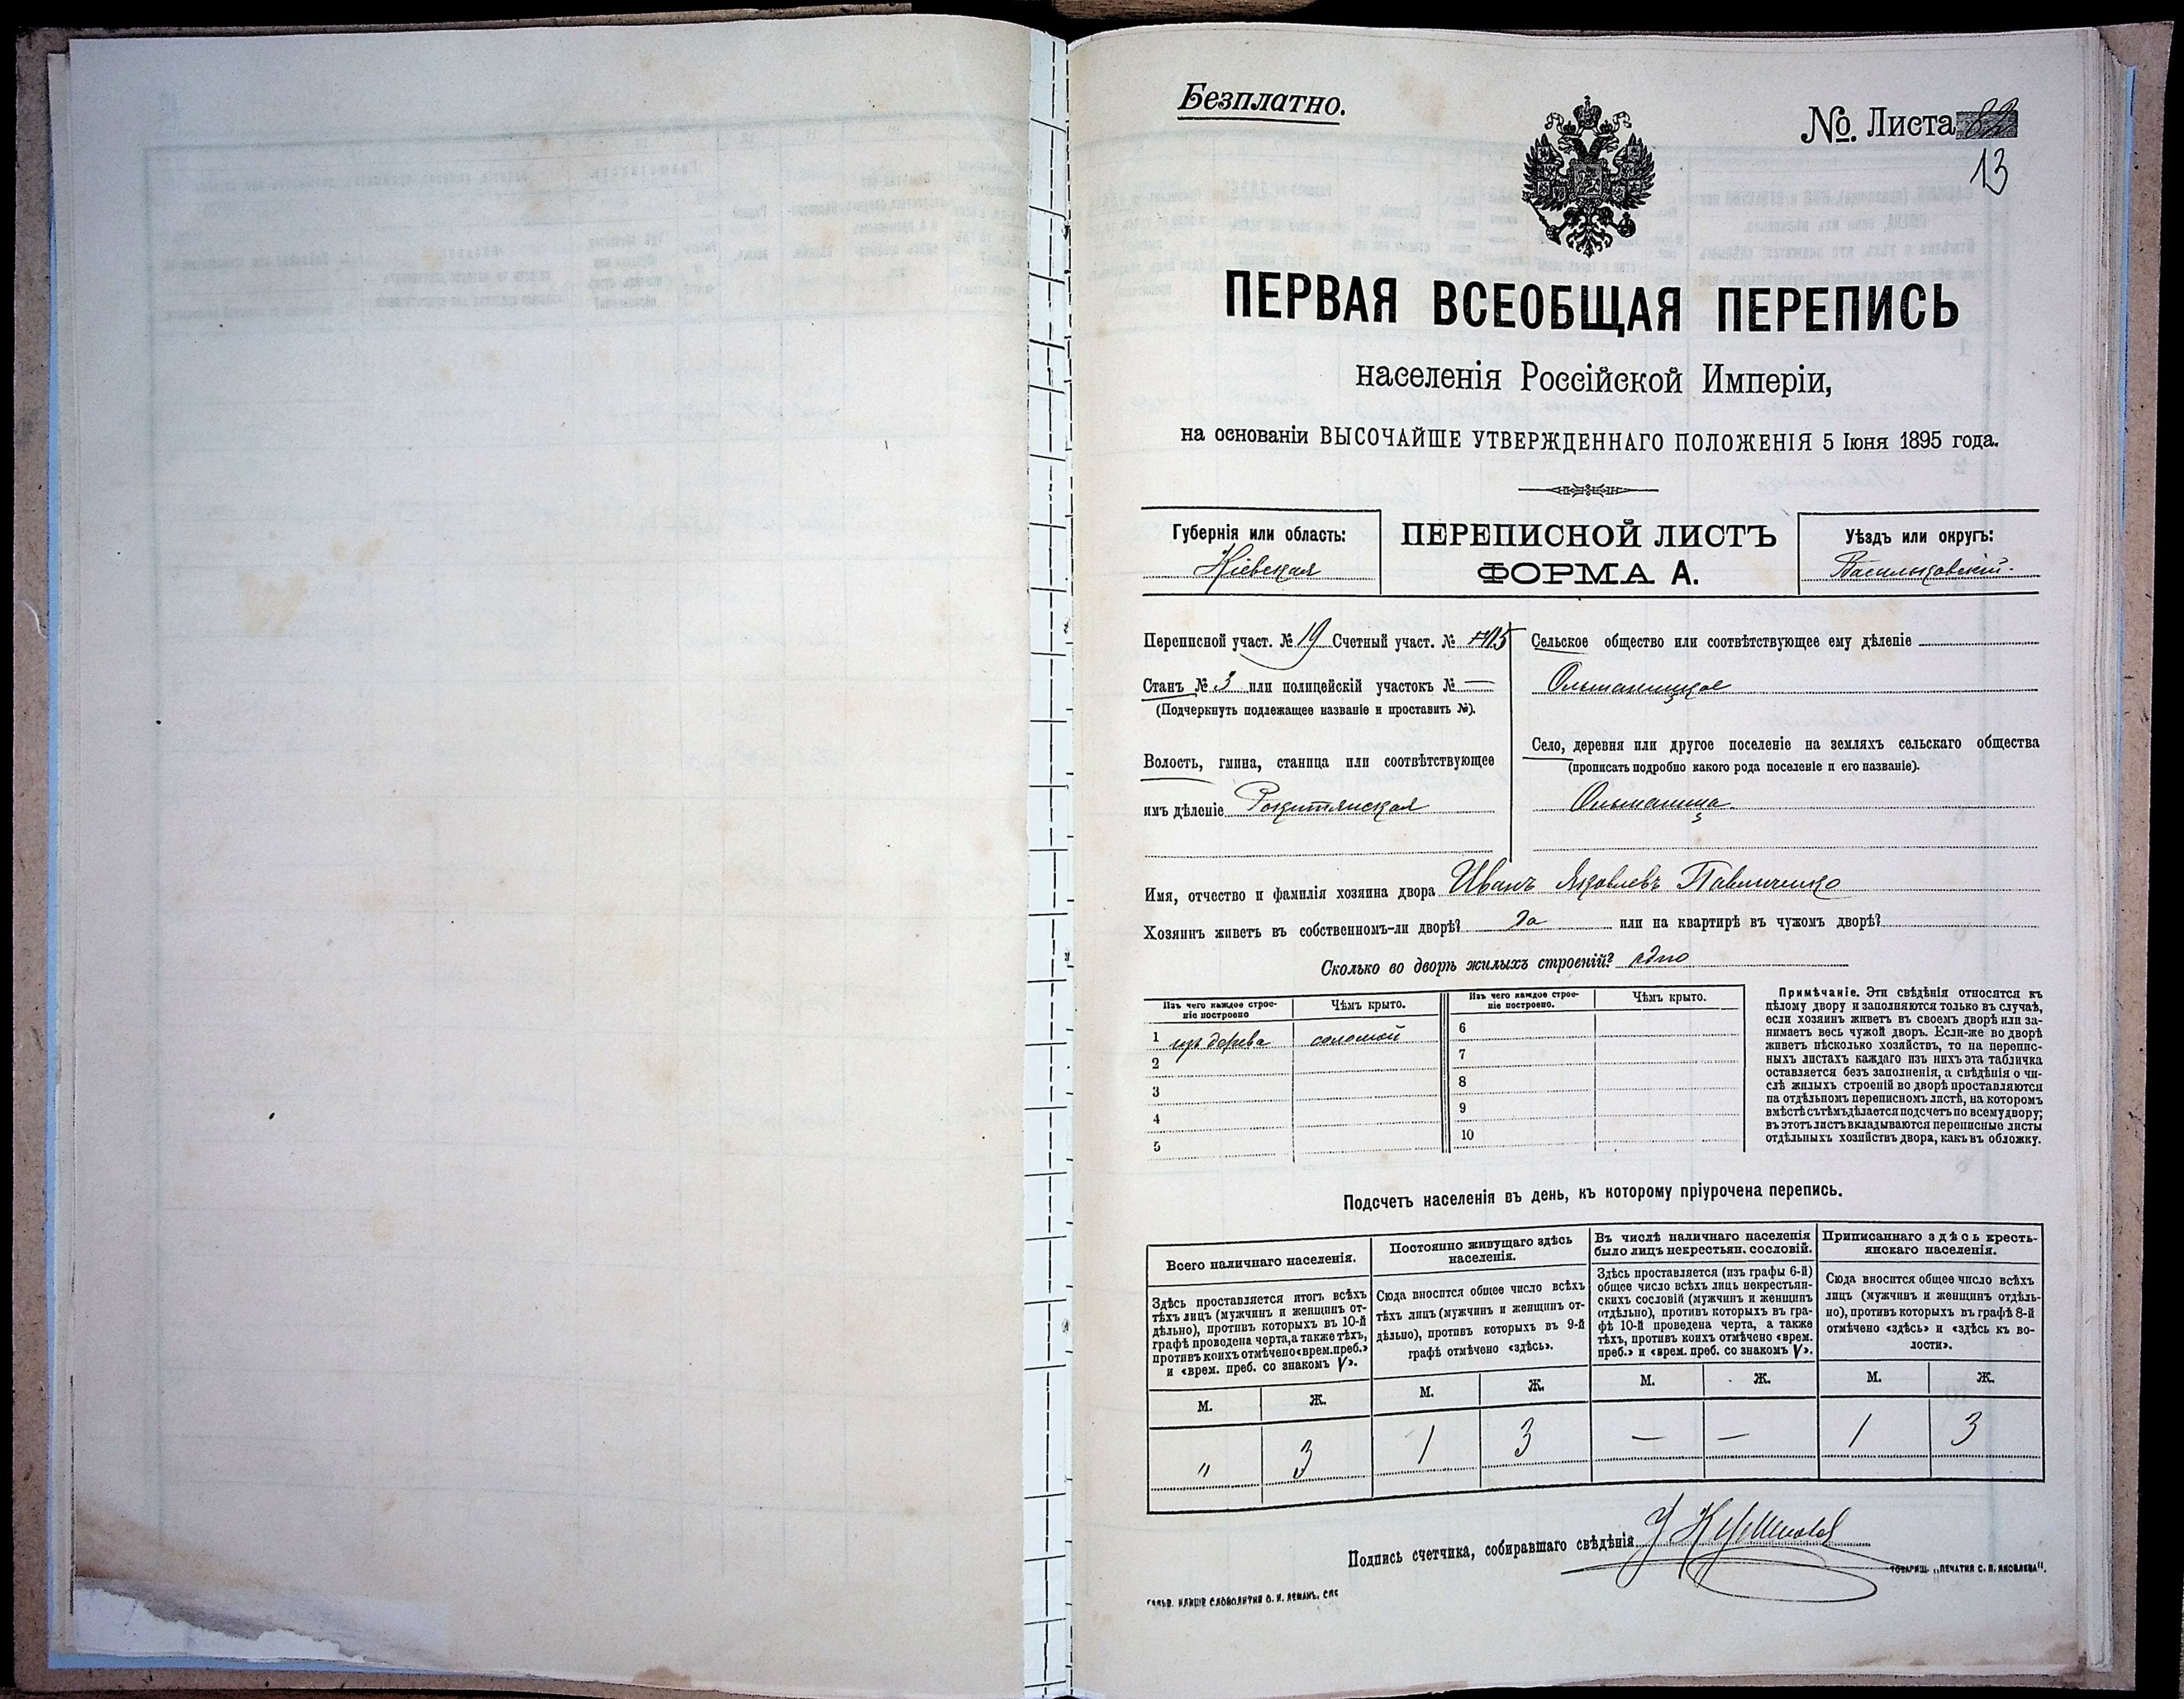 Безплатно.
№ Листа 82
13
ПЕРВАЯ ВСЕОБЩАЯ ПЕРЕПИСЬ
населенія Россійской Имперіи,
на основаніи ВЫСОЧАЙШЕ УТВЕРЖДЕННАГО ПОЛОЖЕНІЯ 5 Іюня 1895 года.
Губернія или область:
Кіевская
ПЕРЕПИСНОЙ ЛИСТЪ
ФОРМА А.
Уѣздъ или округъ:
Васильковскій.
Переписной участ. № 19 Счетный участ. №
Станъ № 3 или полицейскій участокъ № —
(Подчеркнуть подлежащее названіе и проставить №).
Волость, гмина, станица или соотвѣтствующее
имъ дѣленіе Рокитянская
Сельское общество или соотвѣтствующее ему дѣленіе
Ольшаницкое
Село, деревня или другое поселеніе на земляхъ сельскаго общества
(прописать подробно какого рода поселеніе и его названіе).
Ольшаница
Имя, отчество и фамилія хозяина двора Иванъ Яковлевъ Павличенко
Хозяинъ живетъ въ собственномъ-ли дворѣ? Да или на квартирѣ въ чужомъ дворѣ?
Сколько во дворѣ жилыхъ строеній? одно
Изъ чего каждое строе-
ніе построено
Чѣмъ крыто.
Изъ чего каждое строе-
ніе построено.
Чѣмъ крыто.
1 изъ дерева соломой 6
2 7
3 8
4 9
5 10
Примѣчаніе. Эти свѣдѣнія относятся къ
цѣлому двору и заполняются только въ случаѣ,
если хозяинъ живетъ въ своемъ дворѣ или за-
нимаетъ весь чужой дворъ. Если-же во дворѣ
живетъ нѣсколько хозяйствъ, то на перепис-
ныхъ листахъ каждаго изъ нихъ эта табличка
оставляется безъ заполненія, а свѣдѣнія о чи-
слѣ жилыхъ строеній во дворѣ проставляются
на отдѣльномъ переписномъ листѣ, на которомъ
вмѣстѣ съ тѣмъ дѣлается подсчетъ по всему двору;
въ этотъ листъ вкладываются переписные листы
отдѣльныхъ хозяйствъ двора, какъ въ обложку.
Подсчетъ населенія въ день, къ которому пріурочена перепись.
Всего наличнаго населенія.
Здѣсь проставляется итогъ всѣхъ
тѣхъ лицъ (мужчинъ и женщинъ от-
дѣльно), противъ которыхъ въ 10-й
графѣ проведена черта, а также тѣхъ,
противъ коихъ отмѣчено «врем. преб.»
и «врем. преб. со знакомъ V».
Постоянно живущаго здѣсь
населенія.
Сюда вносится общее число всѣхъ
тѣхъ лицъ (мужчинъ и женщинъ от-
дѣльно), противъ которыхъ въ 9-й
графѣ отмѣчено «здѣсь».
Въ числѣ наличнаго населенія
было лицъ некрестьян. сословій.
Здѣсь проставляется (изъ графы 6-й)
общее число всѣхъ лицъ некрестьян-
скихъ сословій (мужчинъ и женщинъ
отдѣльно), противъ которыхъ въ гра-
фѣ 10-й проведена черта, а также
тѣхъ, противъ коихъ отмѣчено «врем.
преб.» и «врем. преб. со знакомъ V».
Приписаннаго здѣсь кресть-
янскаго населенія.
Сюда вносится общее число всѣхъ
лицъ (мужчинъ и женщинъ отдѣль-
но), противъ которыхъ въ графѣ 8-й
отмѣчено «здѣсь» и «здѣсь къ во-
лости».
М. Ж. М. Ж. М. Ж. М. Ж.
" 3 1 3 — — 1 3
Подпись счетчика, собиравшаго свѣдѣнія
ТОВАРИЩ. „ПЕЧАТНЯ С. П. ЯКОВЛЕВА".
СЛОВОЛИТНИ О. И. ЛЕМАНЪ, СПБ